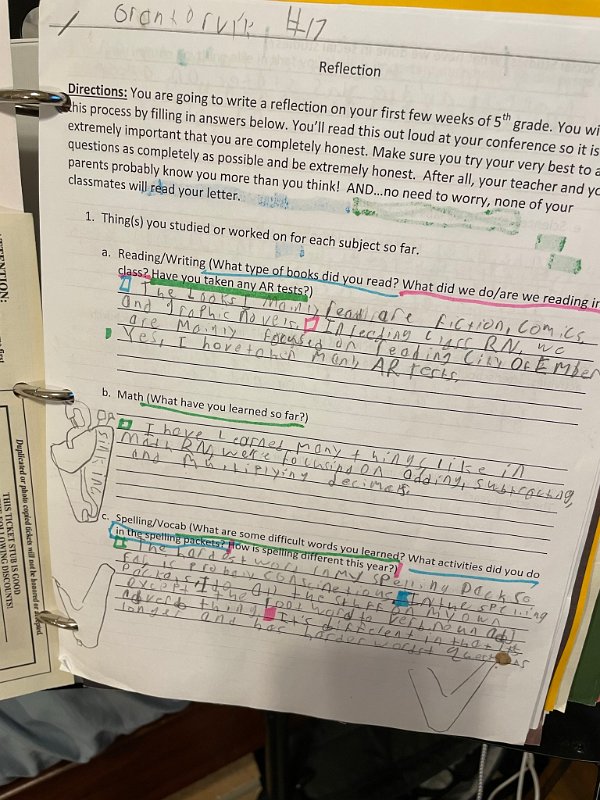 #17
Reflection
Directions: You are going to write a reflection on your first few weeks of 5th grade. You wi
this process by filling in answers below. You'll read this out loud at your conference so it is
extremely important that you are completely honest. Make sure you try your very best to a
questions as completely as possible and be extremely honest. After all, your teacher and yo
parents probably know you more than you think! AND...no need to worry, none of your
classmates will read your letter.
1. Thing(s) you studied or worked on for each subject so far.
a. Reading/Writing (What type of books did you read? What did we do/are we reading in
class? Have you taken any AR tests?)
The books I mainly read are fiction, comics
and graphic novels. In reading class RN, we
are mainly focused on reading City Of Ember
Yes, I have taken many AR tests.
b. Math (What have you learned so far?)
I have learned many things like in
math RN, we're focusing on adding, subtracting,
and multiplying decimals.
c. Spelling/Vocab (What are some difficult words you learned? What activities did you do
in the spelling packets? How is spelling different this year?)
The hardest word in my spelling packs so
far is probaly In the spelling
I do all the stuff on my own
except the
thing. It's different in that its
longer and has harder
ETENTION:
Duplicated or photo copied tickets will not be honored or accepted.
THIS TICKET STUB IS GOOD
FOLLOWING DISCOUNTS!